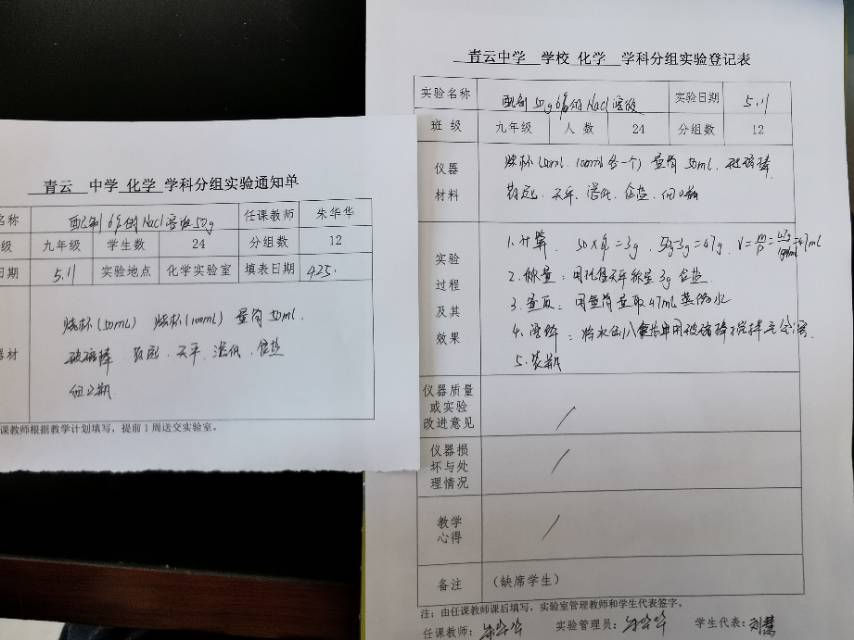 青云 中学 化学 学科分组实验通知单
名称 配制6%的NaCl溶液50g 任课教师 朱华华
级 九年级 学生数 24 分组数 12
日期 5.11 实验地点 化学实验室 填表日期 4.25.
器材
烧杯(50mL) 烧杯(100mL) 量筒50mL.
玻璃棒 药匙. 天平. 滤纸. 食盐
细口瓶
课教师根据教学计划填写，提前1周送交实验室。
青云中学 学校 化学 学科分组实验登记表
实验名称 配制50g6%的NaCl溶液 实验日期 5.11
班 级 九年级 人 数 24 分组数 12
仪器材料
烧杯(50mL 100mL各一个) 量筒50mL. 玻璃棒
药匙. 天平. 滤纸. 食盐. 细口瓶
实验过程及其效果
1.计算. 50×6%=3g. 50g-3g=47g.
2.称量：用托盘天平称量3g食盐
3.量取：用量筒量取47mL蒸馏水
4.溶解：将水倒入烧杯中用玻璃棒搅拌
5.装瓶
仪器质量或实验改进意见 /
仪器损坏与处理情况 /
教学心得 /
备注 (缺席学生)
注：由任课教师课后填写，实验室管理教师和学生代表签字。
任课教师：朱华华 实验管理员：朱华华 学生代表：刘慧